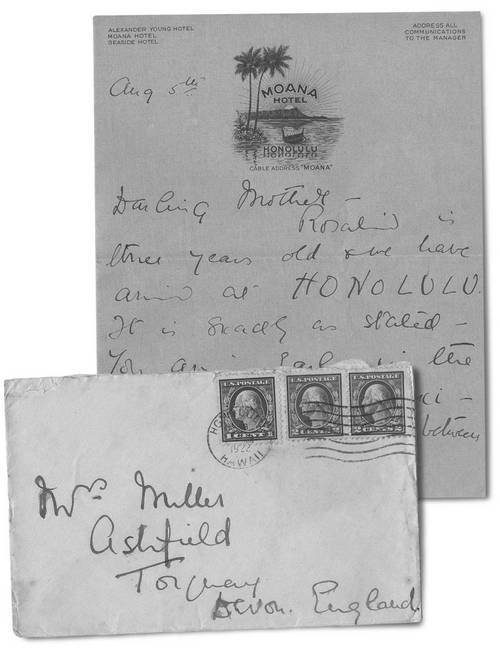 ALEXANDER YOUNG HOTEL
MOANA HOTEL
SEASIDE HOTEL
ADDRESS ALL
COMMUNICATIONS
TO THE MANAGER
MOANA
HOTEL
HONOLULU
CABLE ADDRESS "MOANA"
Aug 5th
Darling Mother -
Rosalind is
three years old & we have
arrived at HONOLULU.
It is exactly as stated -
You arrive Early in the
between
U.S. POSTAGE
1 CENT 1
U.S. POSTAGE
2 CENTS 2
U.S. POSTAGE
2 CENTS 2
1922
HAWAII
Mrs Miller
Ashfield
Torquay
Devon. England.